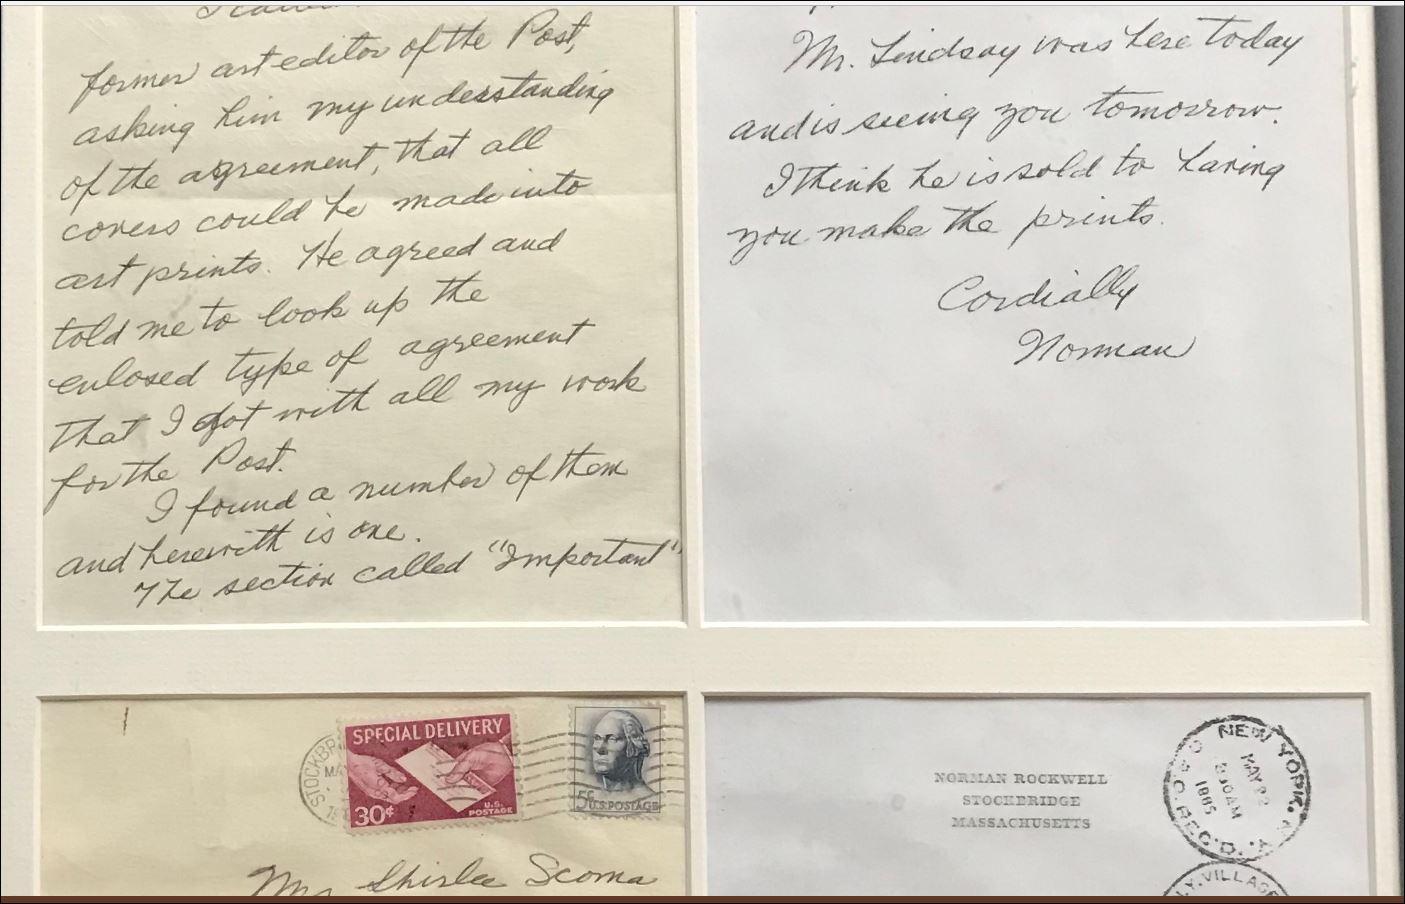 former art editor of the Post,
asking him my understanding
of the agreement, that all
covers could be made into
art prints. He agreed and
told me to look up the
enlosed type of agreement
that I got with all my work
for the Post.
I found a number of them
and herewith is one.
The section called "Important"
Mr. Lindsay was here today
and is seeing you tomorrow.
I think he is sold to having
you make the prints.
Cordially
Norman
STOCKBRI
MA
SPECIAL DELIVERY
30¢
U.S.
POSTAGE
5¢ U.S. POSTAGE
Shirlee Scoma
NORMAN ROCKWELL
STOCKBRIDGE
MASSACHUSETTS
NEW YORK, N.Y.
MAY 22
AM
REC'D.
VILLAGE